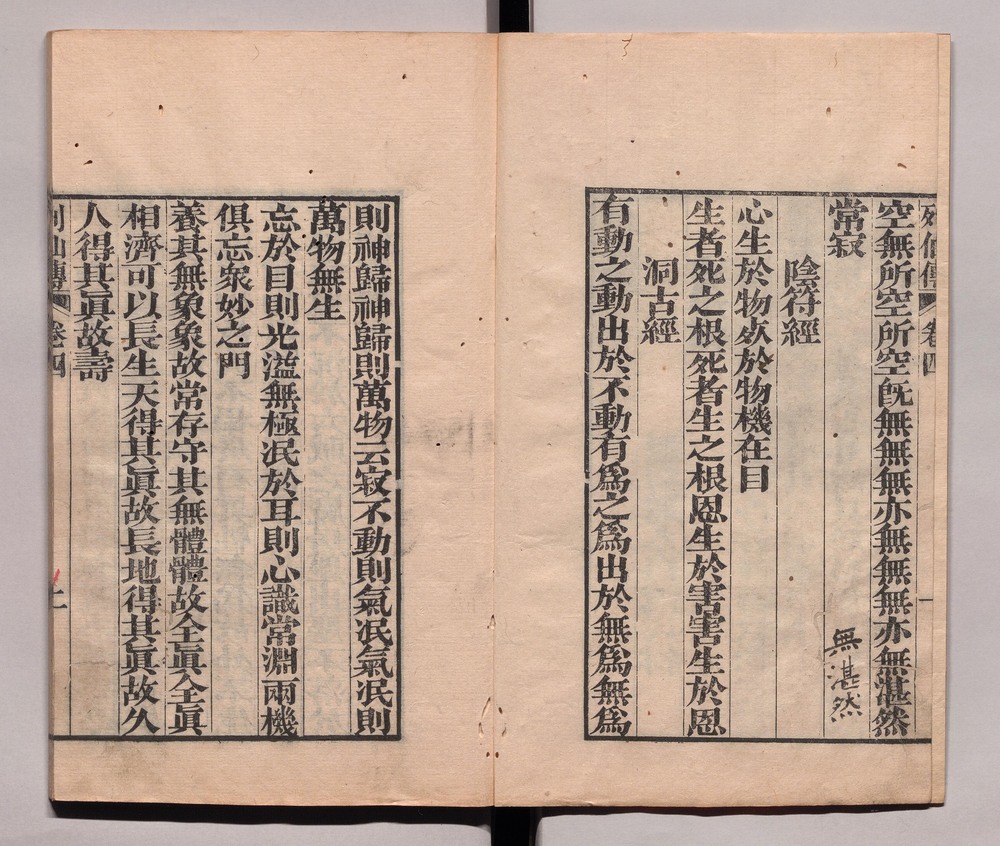 列仙傳 卷四 一
空無所空所空旣無無無亦無無無亦無湛然
常寂
無湛然
陰符經
心生於物死於物機在目
生者死之根死者生之根恩生於害害生於恩
洞古經
有動之動出於不動有爲之爲出於無爲無爲
則神歸神歸則萬物云寂不動則氣泯氣泯則
萬物無生
忘於目則光溢無極泯於耳則心識常淵兩機
俱忘衆妙之門
養其無象象故常存守其無體體故全眞全眞
相濟可以長生天得其眞故長地得其眞故久
人得其眞故壽
列仙傳 卷四 上